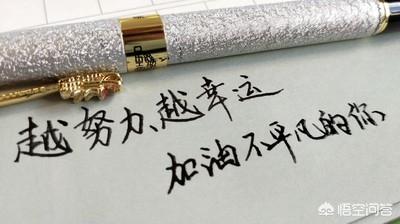 越努力、越幸运
加油不平凡的你
悟空问答